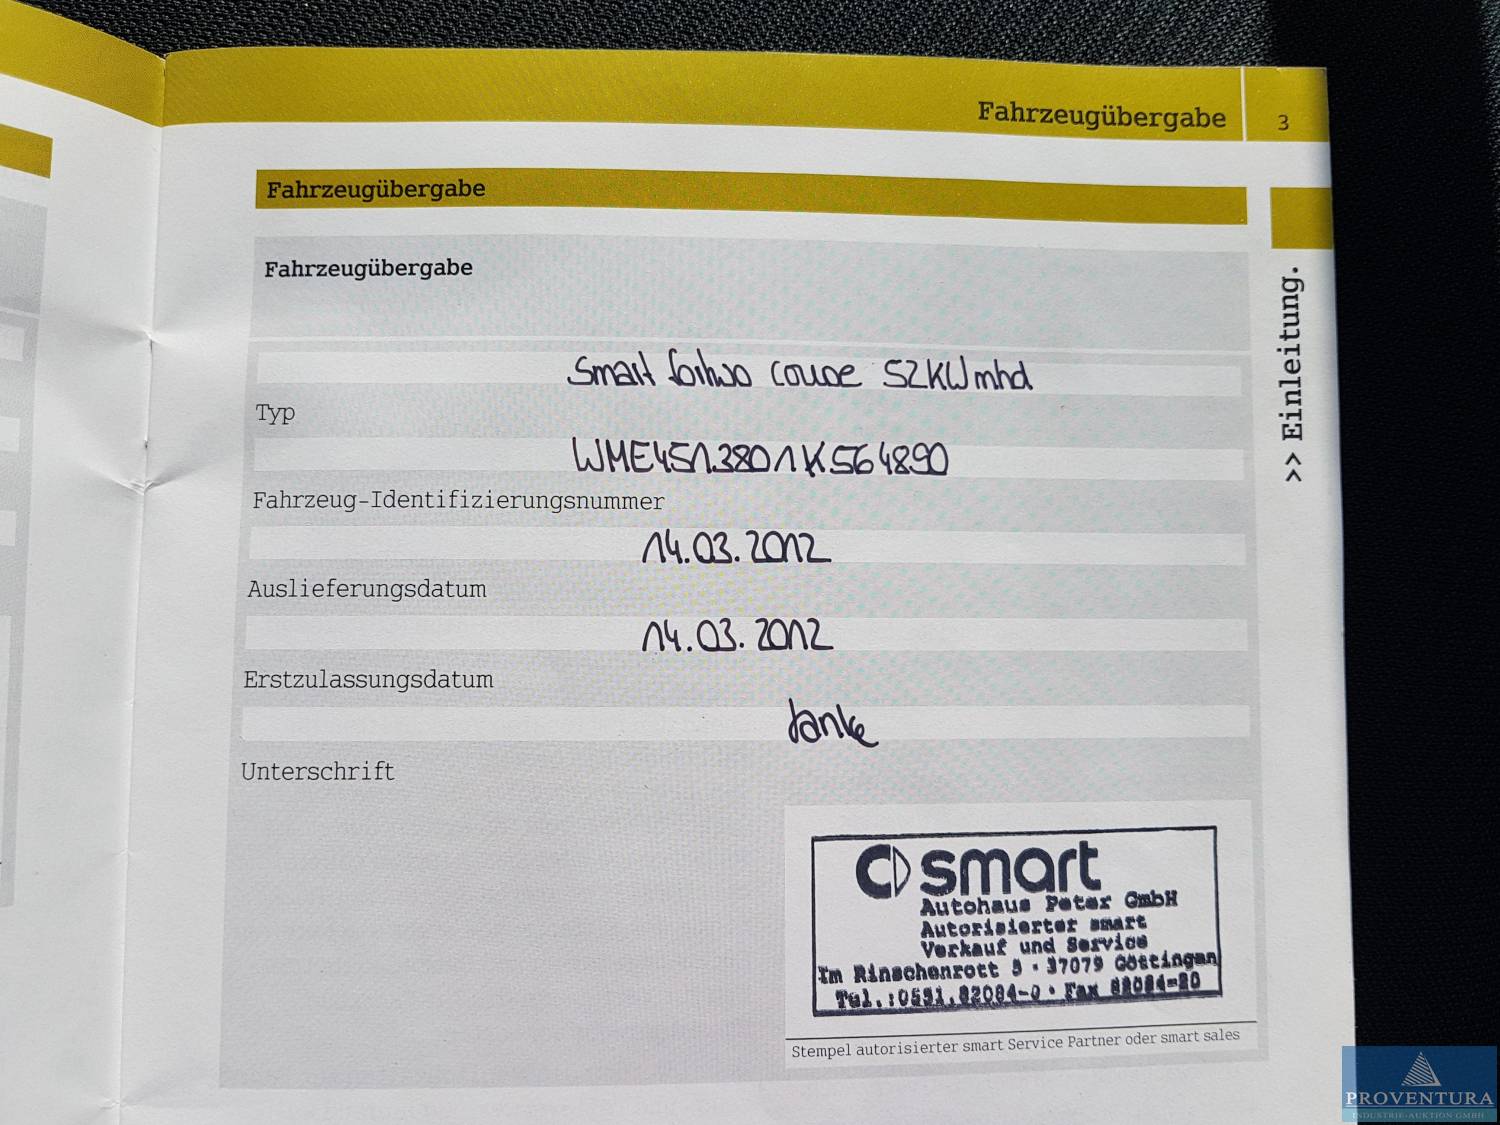 Fahrzeugübergabe 3
Fahrzeugübergabe
Fahrzeugübergabe
Smart fortwo coupe 52KW mhd
Typ
WME4513801K564890
Fahrzeug-Identifizierungsnummer
14.03.2012
Auslieferungsdatum
14.03.2012
Erstzulassungsdatum
Janke
Unterschrift
smart
Autohaus Peter GmbH
Autorisierter smart
Verkauf und Service
Im Rinschenrott 5 · 37079 Göttingen
Tel.:0551.82084-0 · Fax 82084-20
Stempel autorisierter smart Service Partner oder smart sales
>> Einleitung.
PROVENTURA
INDUSTRIE-AUKTION GMBH